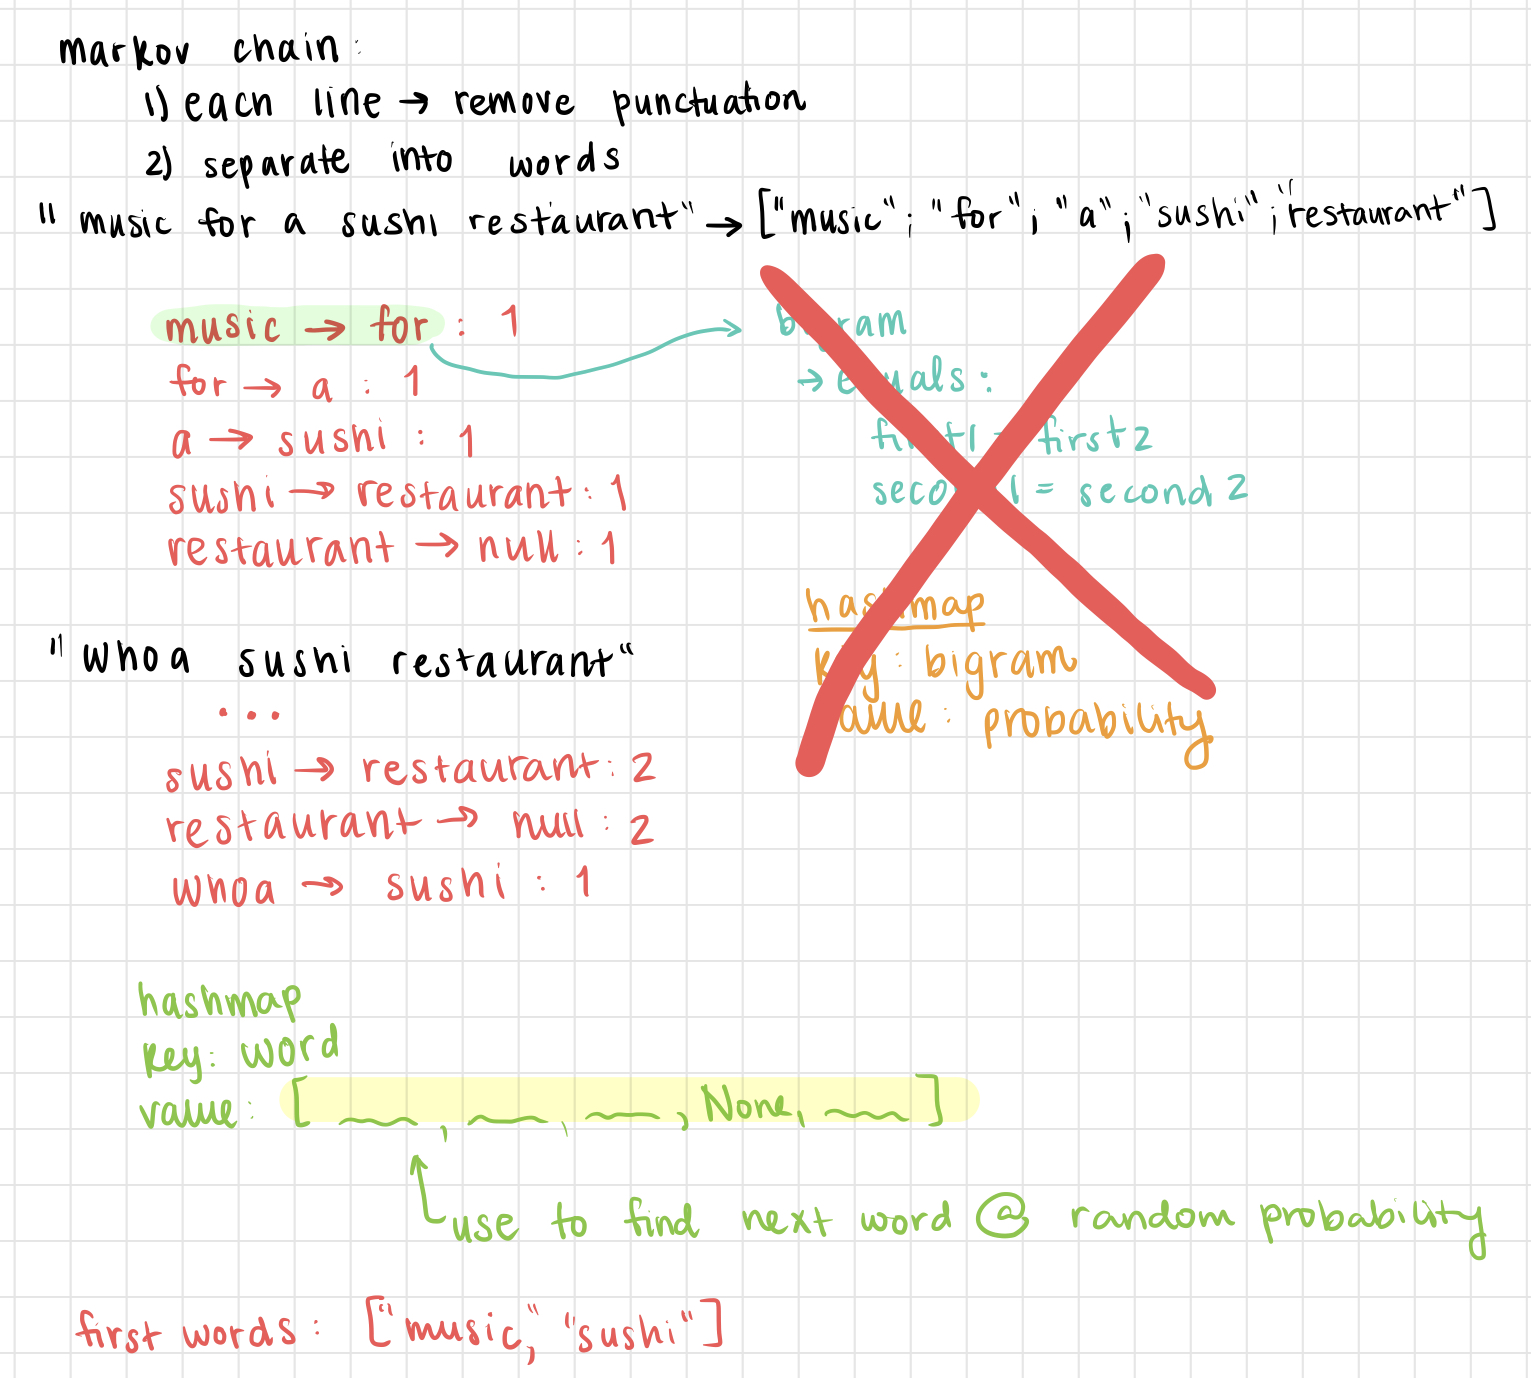 markov chain:
1) each line → remove punctuation
2) separate into words
"music for a sushi restaurant" → ["music"; "for"; "a"; "sushi"; "restaurant"]
music → for : 1
for → a : 1
a → sushi : 1
sushi → restaurant : 1
restaurant → null : 1
bigram
→ equals:
first1 = first2
second1 = second2
hashmap
key: bigram
value: probability
"whoa sushi restaurant"
...
sushi → restaurant: 2
restaurant → null : 2
whoa → sushi : 1
hashmap
key: word
value: [ __, __, __, None, __ ]
use to find next word @ random probability
first words: ["music," "sushi"]